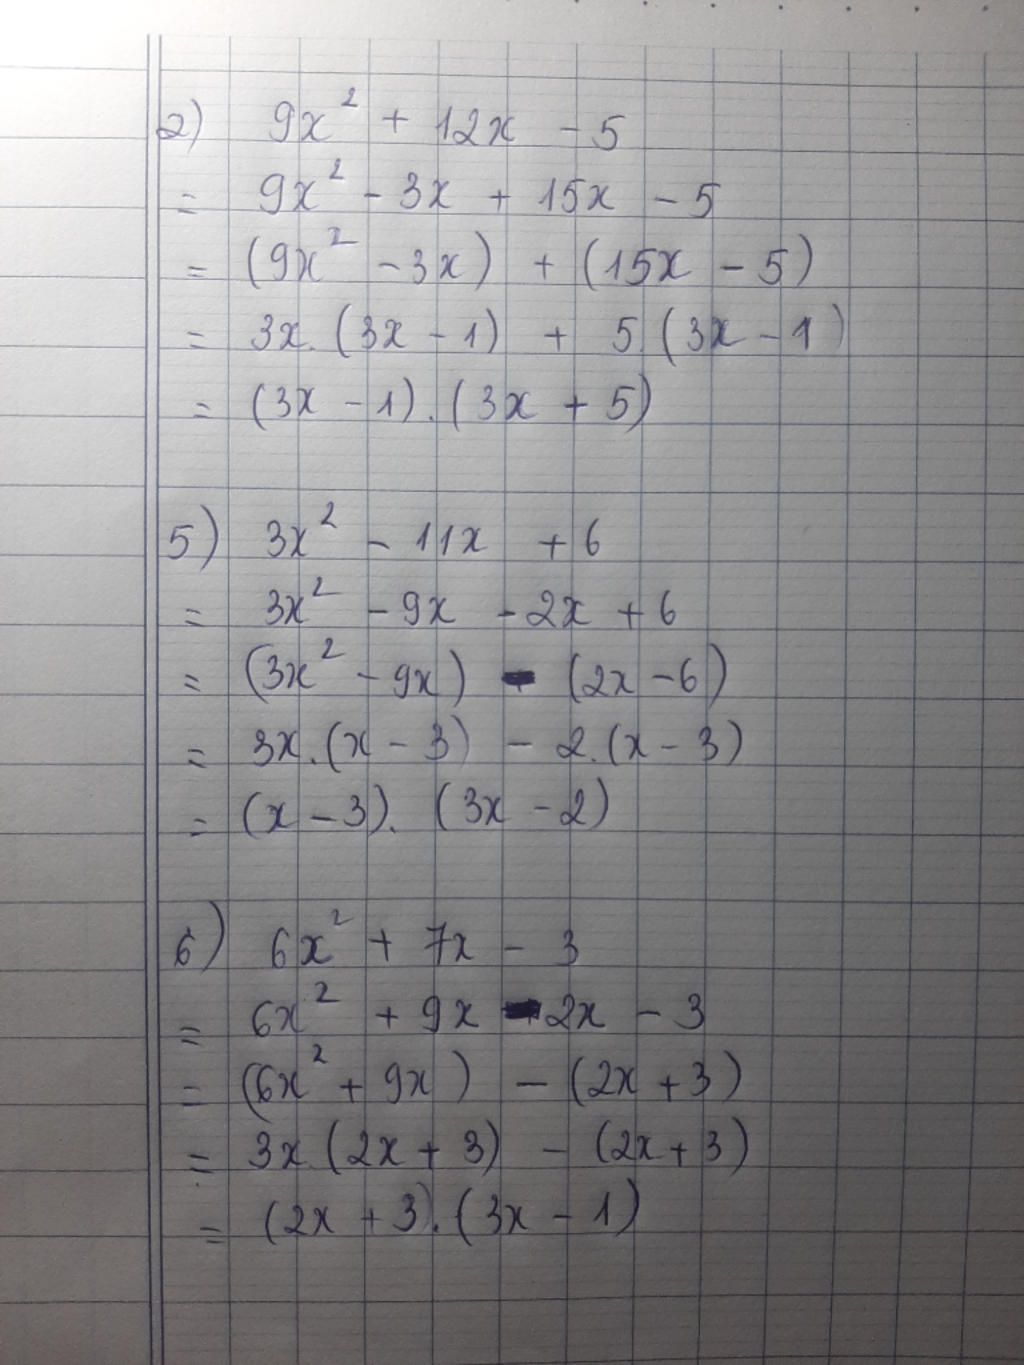 2) 9x² + 12x - 5
= 9x² - 3x + 15x - 5
= (9x² - 3x) + (15x - 5)
= 3x.(3x - 1) + 5.(3x - 1)
= (3x - 1).(3x + 5)
5) 3x² - 11x + 6
= 3x² - 9x - 2x + 6
= (3x² - 9x) - (2x - 6)
= 3x.(x - 3) - 2.(x - 3)
= (x - 3).(3x - 2)
6) 6x² + 7x - 3
= 6x² + 9x - 2x - 3
= (6x² + 9x) - (2x + 3)
= 3x.(2x + 3) - (2x + 3)
= (2x + 3).(3x - 1)